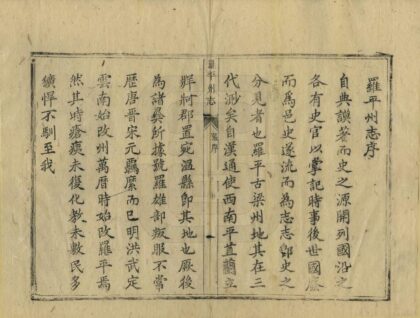 羅平州志序
自典謨著而史之源開列國沿之
各有史官以掌記時事後世國廢
而爲邑史遂流而為志志郡史之
分見者也羅平古梁州地其在三
代渺矣自漢通使西南平且蘭立
羅平州志
序
牂牁郡置宛溫縣即其地也厥後
為諸爨所據號羅雄部叛服不常
歷唐晋宋元羈縻而已明洪武定
雲南始改州萬曆時始改羅平焉
然其時瘡痍未復化教未敷民多
獷悍不馴至我